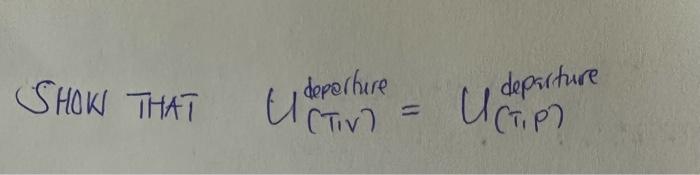 SHOW THAT U departure (T,V) = U departure (T,P)